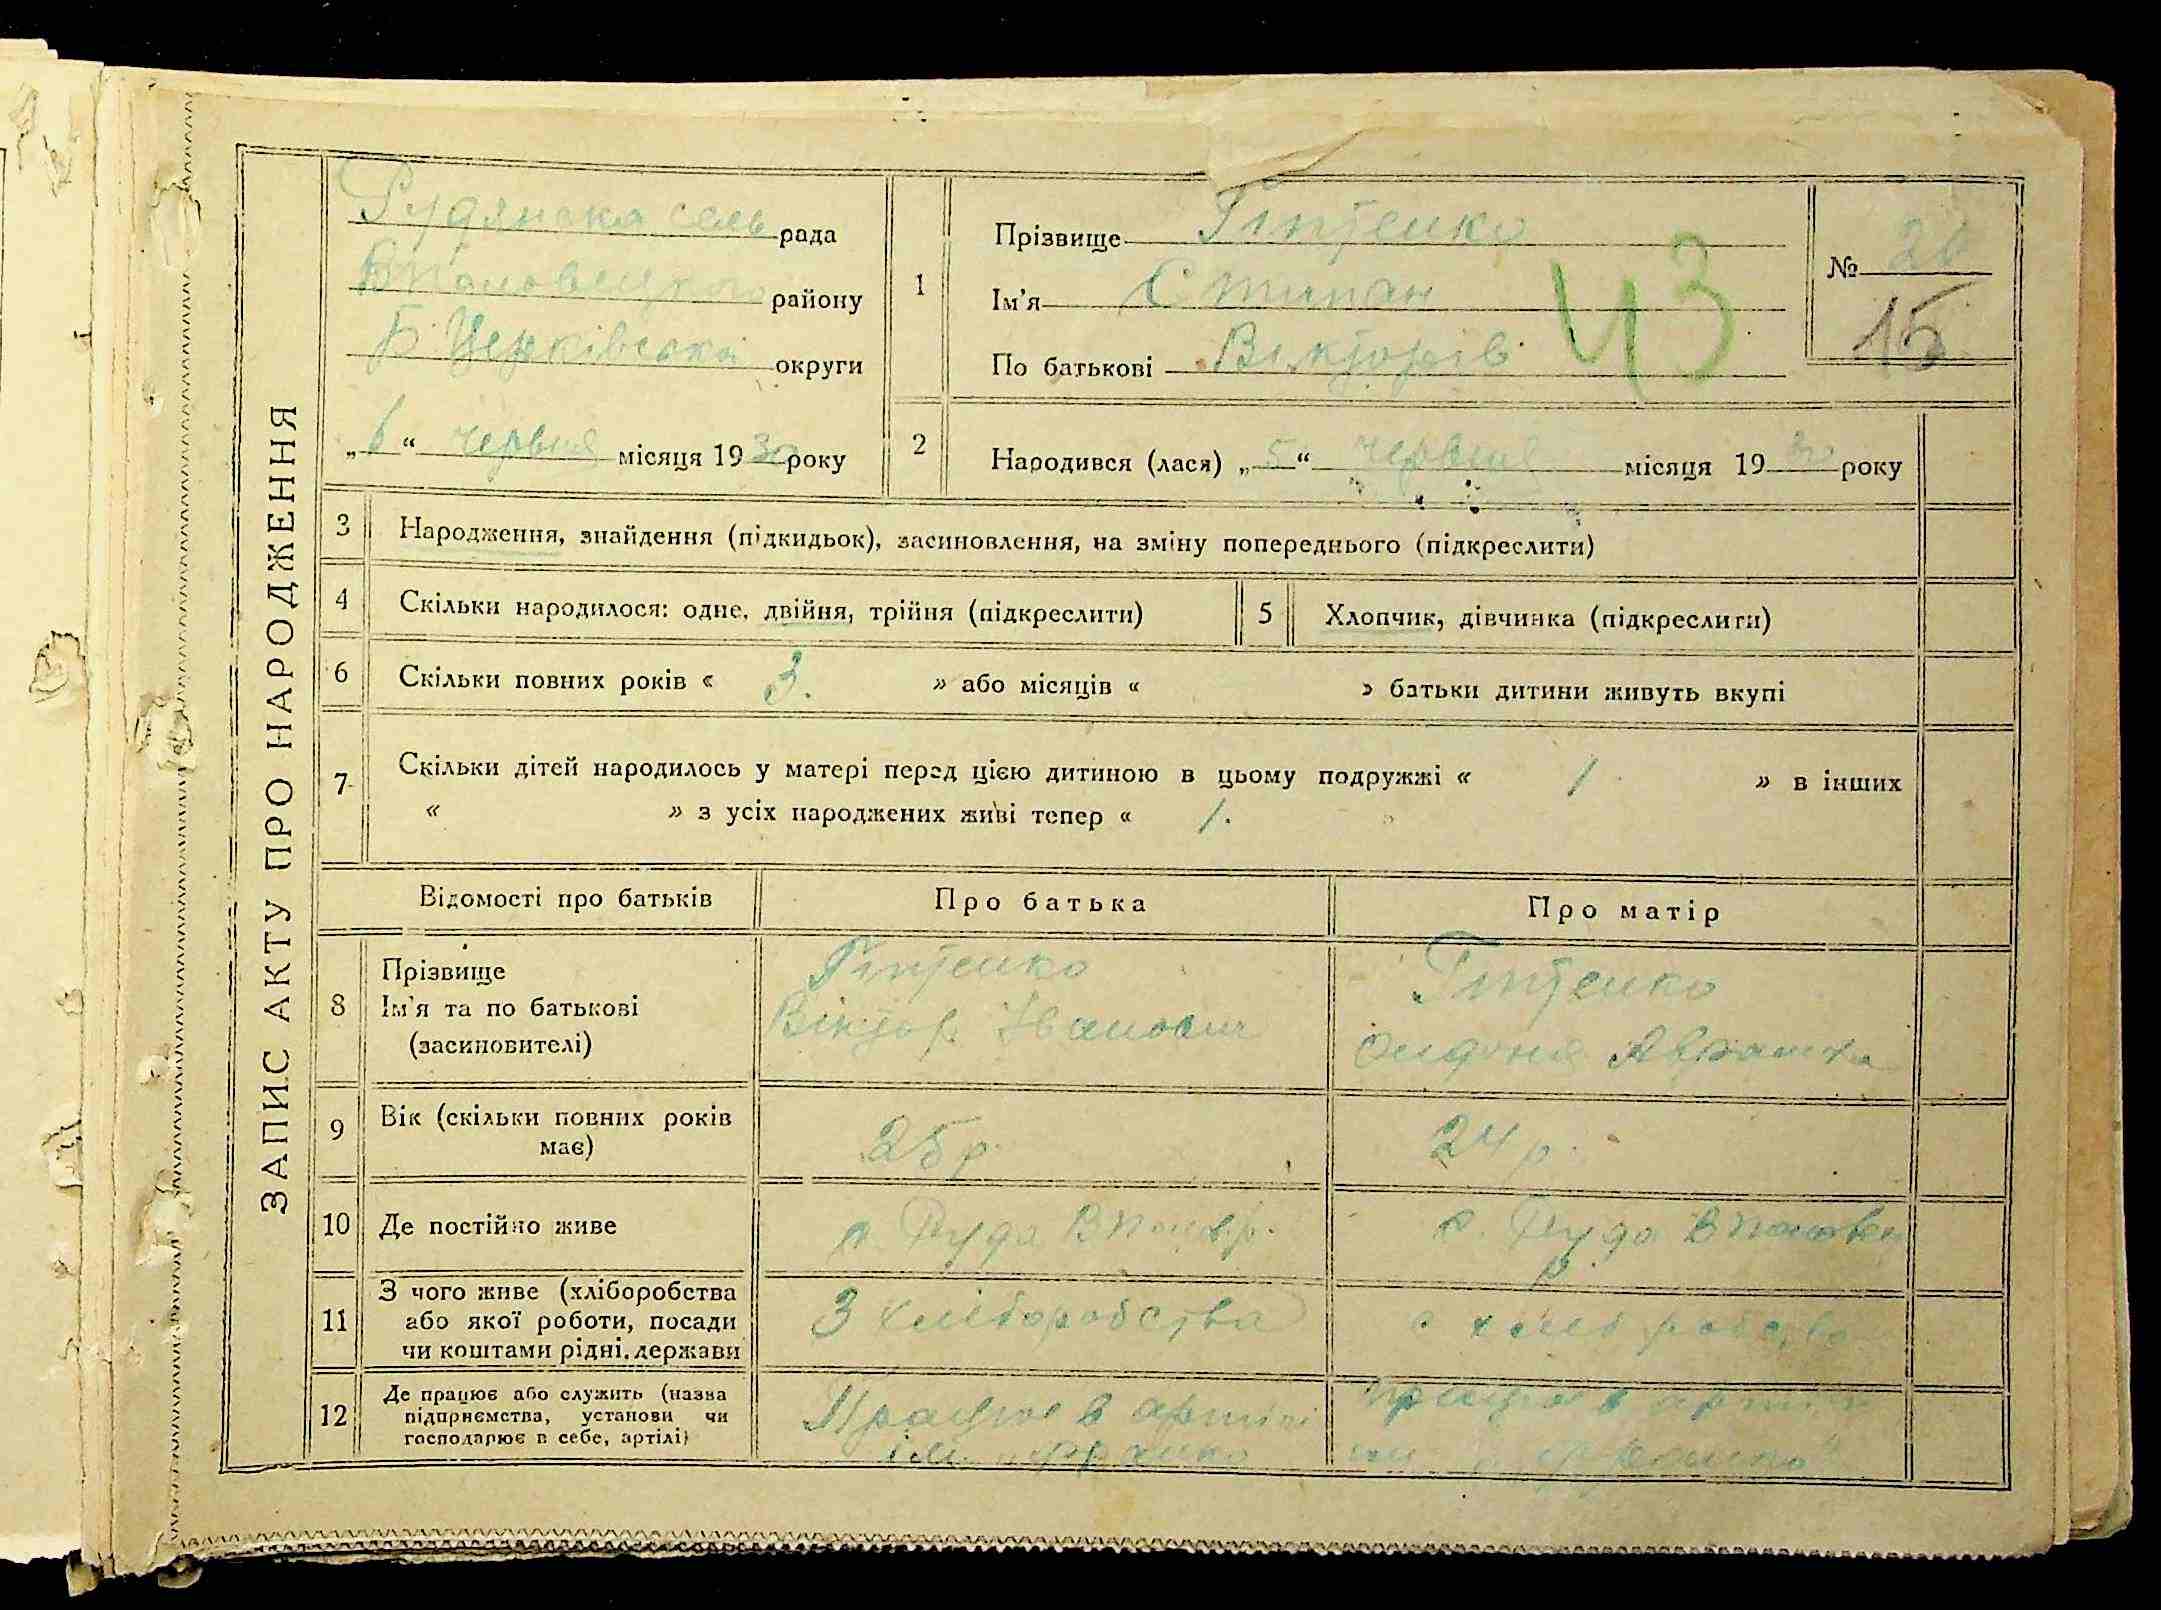 ЗАПИС АКТУ ПРО НАРОДЖЕННЯ
Рудянска сель рада
району
Б Церківська округи
„6“ червня місяця 1930 року
1
Прізвище Гіптенко
Ім'я Стипан
По батькові Вікторів
43
№ 26
15
2
Народився (лася) „5“ червня місяця 1930 року
3 Народження, знайдення (підкидьок), засиновлення, на зміну попереднього (підкреслити)
4 Скільки народилося: одне, двійня, трійня (підкреслити)
5 Хлопчик, дівчинка (підкреслити)
6 Скільки повних років « 3. » або місяців « » батьки дитини живуть вкупі
7 Скільки дітей народилось у матері перед цією дитиною в цьому подружжі « 1 » в інших
« » з усіх народжених живі тепер « 1.
Відомості про батьків
Про батька
Про матір
8
Прізвище
Ім'я та по батькові
(засиновителі)
Гіптенко
Віктор Іванович
Гіптенко
9
Вік (скільки повних років
має)
25 р.
24 р.
10 Де постійно живе
с. Руда
с. Руда
р.
11
З чого живе (хліборобства
або якої роботи, посади
чи коштами рідні, держави
З хліборобства
з хліборобства
12
Де працює або служить (назва
підприємства, установи чи
господарює в себе, артілі)
Працює в артілі
ім. Франко
працює в артілі
ім „Франко“